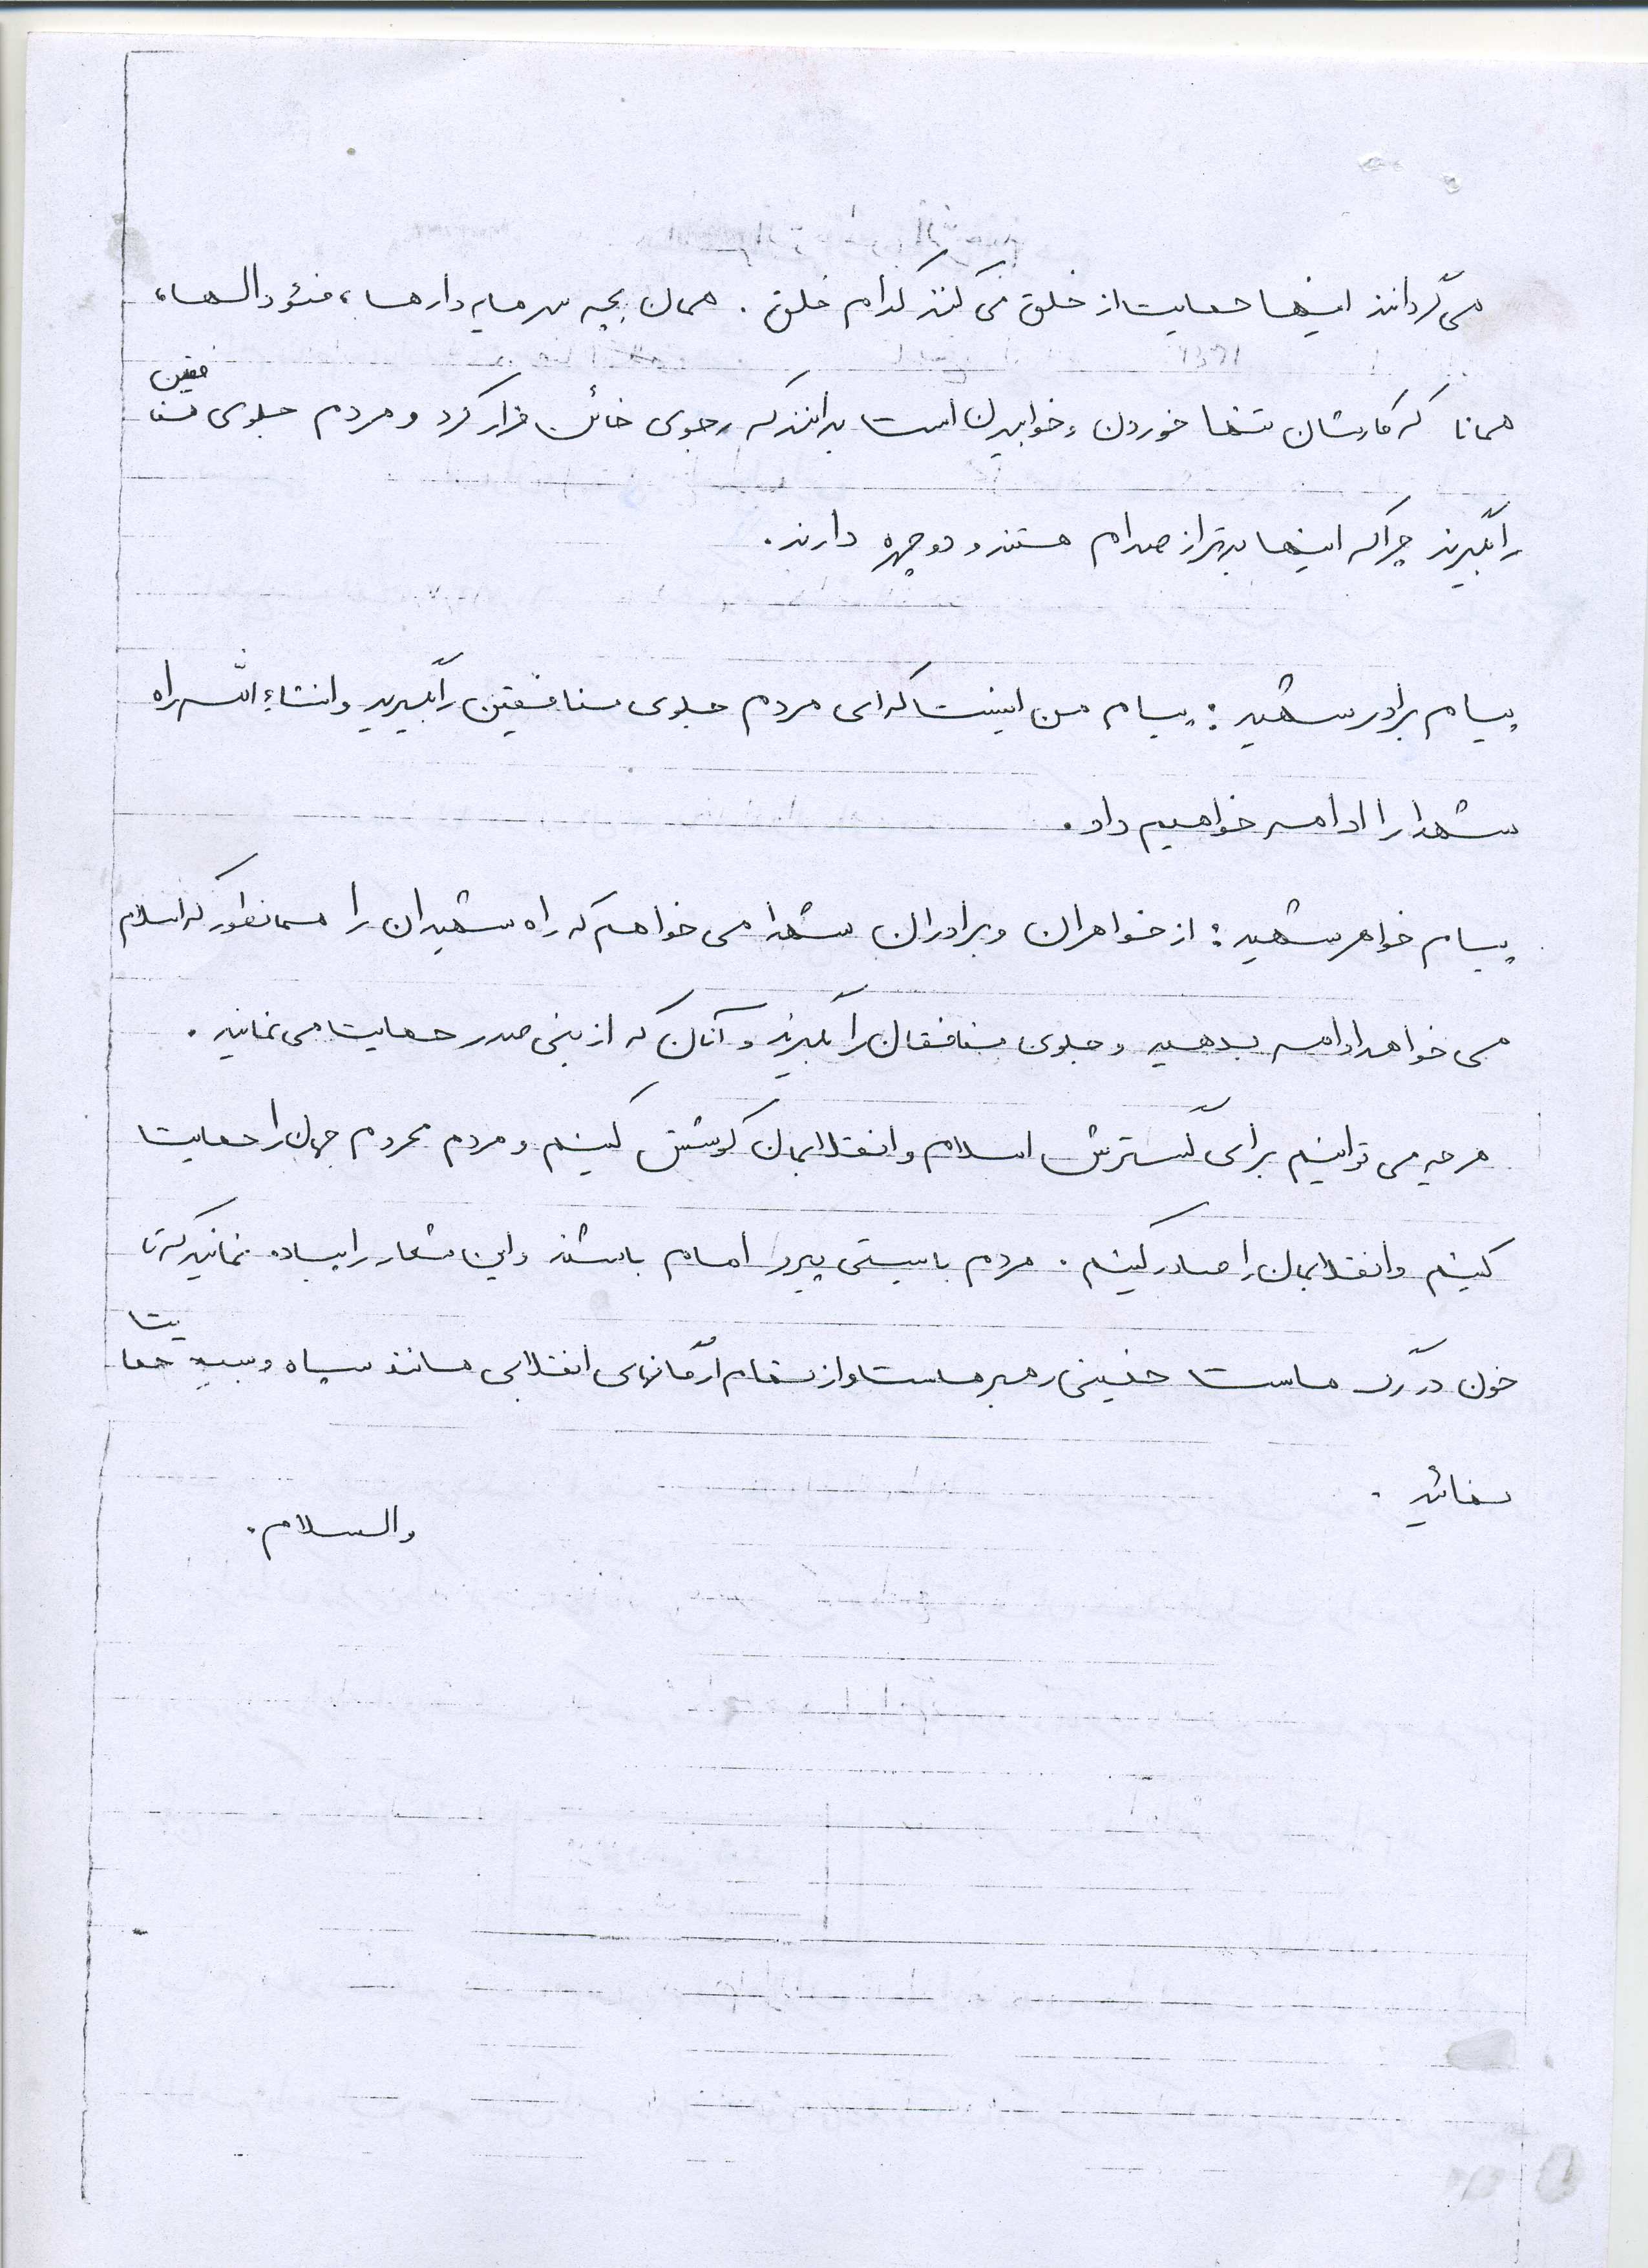 می‌گردانند اینها حمایت از خلق می کنند کدام خلق . همان بچه سرمایه دارها ، فئودالها ،
همانا که کارشان تنها خوردن و خوابیدن است بدانند که رجوی خائن فرار کرد و مردم جلوی منافقین
را بگیرند چرا که اینها بدتر از صدام هستند و دو چهره دارند .
پیام برادر شهید : پیام من اینست که ای مردم جلوی منافقین را بگیرید و انشاءالله راه
شهدا را ادامه خواهیم داد .
پیام خواهر شهید : از خواهران و برادران شهدا می خواهم که راه شهیدان را همانطور که اسلام
می خواهد ادامه بدهید و جلوی منافقان را بگیرند و آنان که از بنی صدر حمایت می نمانید .
هر چه می توانیم برای گسترش اسلام و انقلابمان کوشش کنیم و مردم محروم جهان را حمایت
کنیم و انقلابمان را صادر کنیم . مردم بایستی پیرو امام باشند و این شعار را پیاده نمانید که تا
خون در رگ ماست خمینی رهبر ماست و از تمام ارگانهای انقلابی مانند سپاه و بسیج حمایت
نمائید .
والسلام .